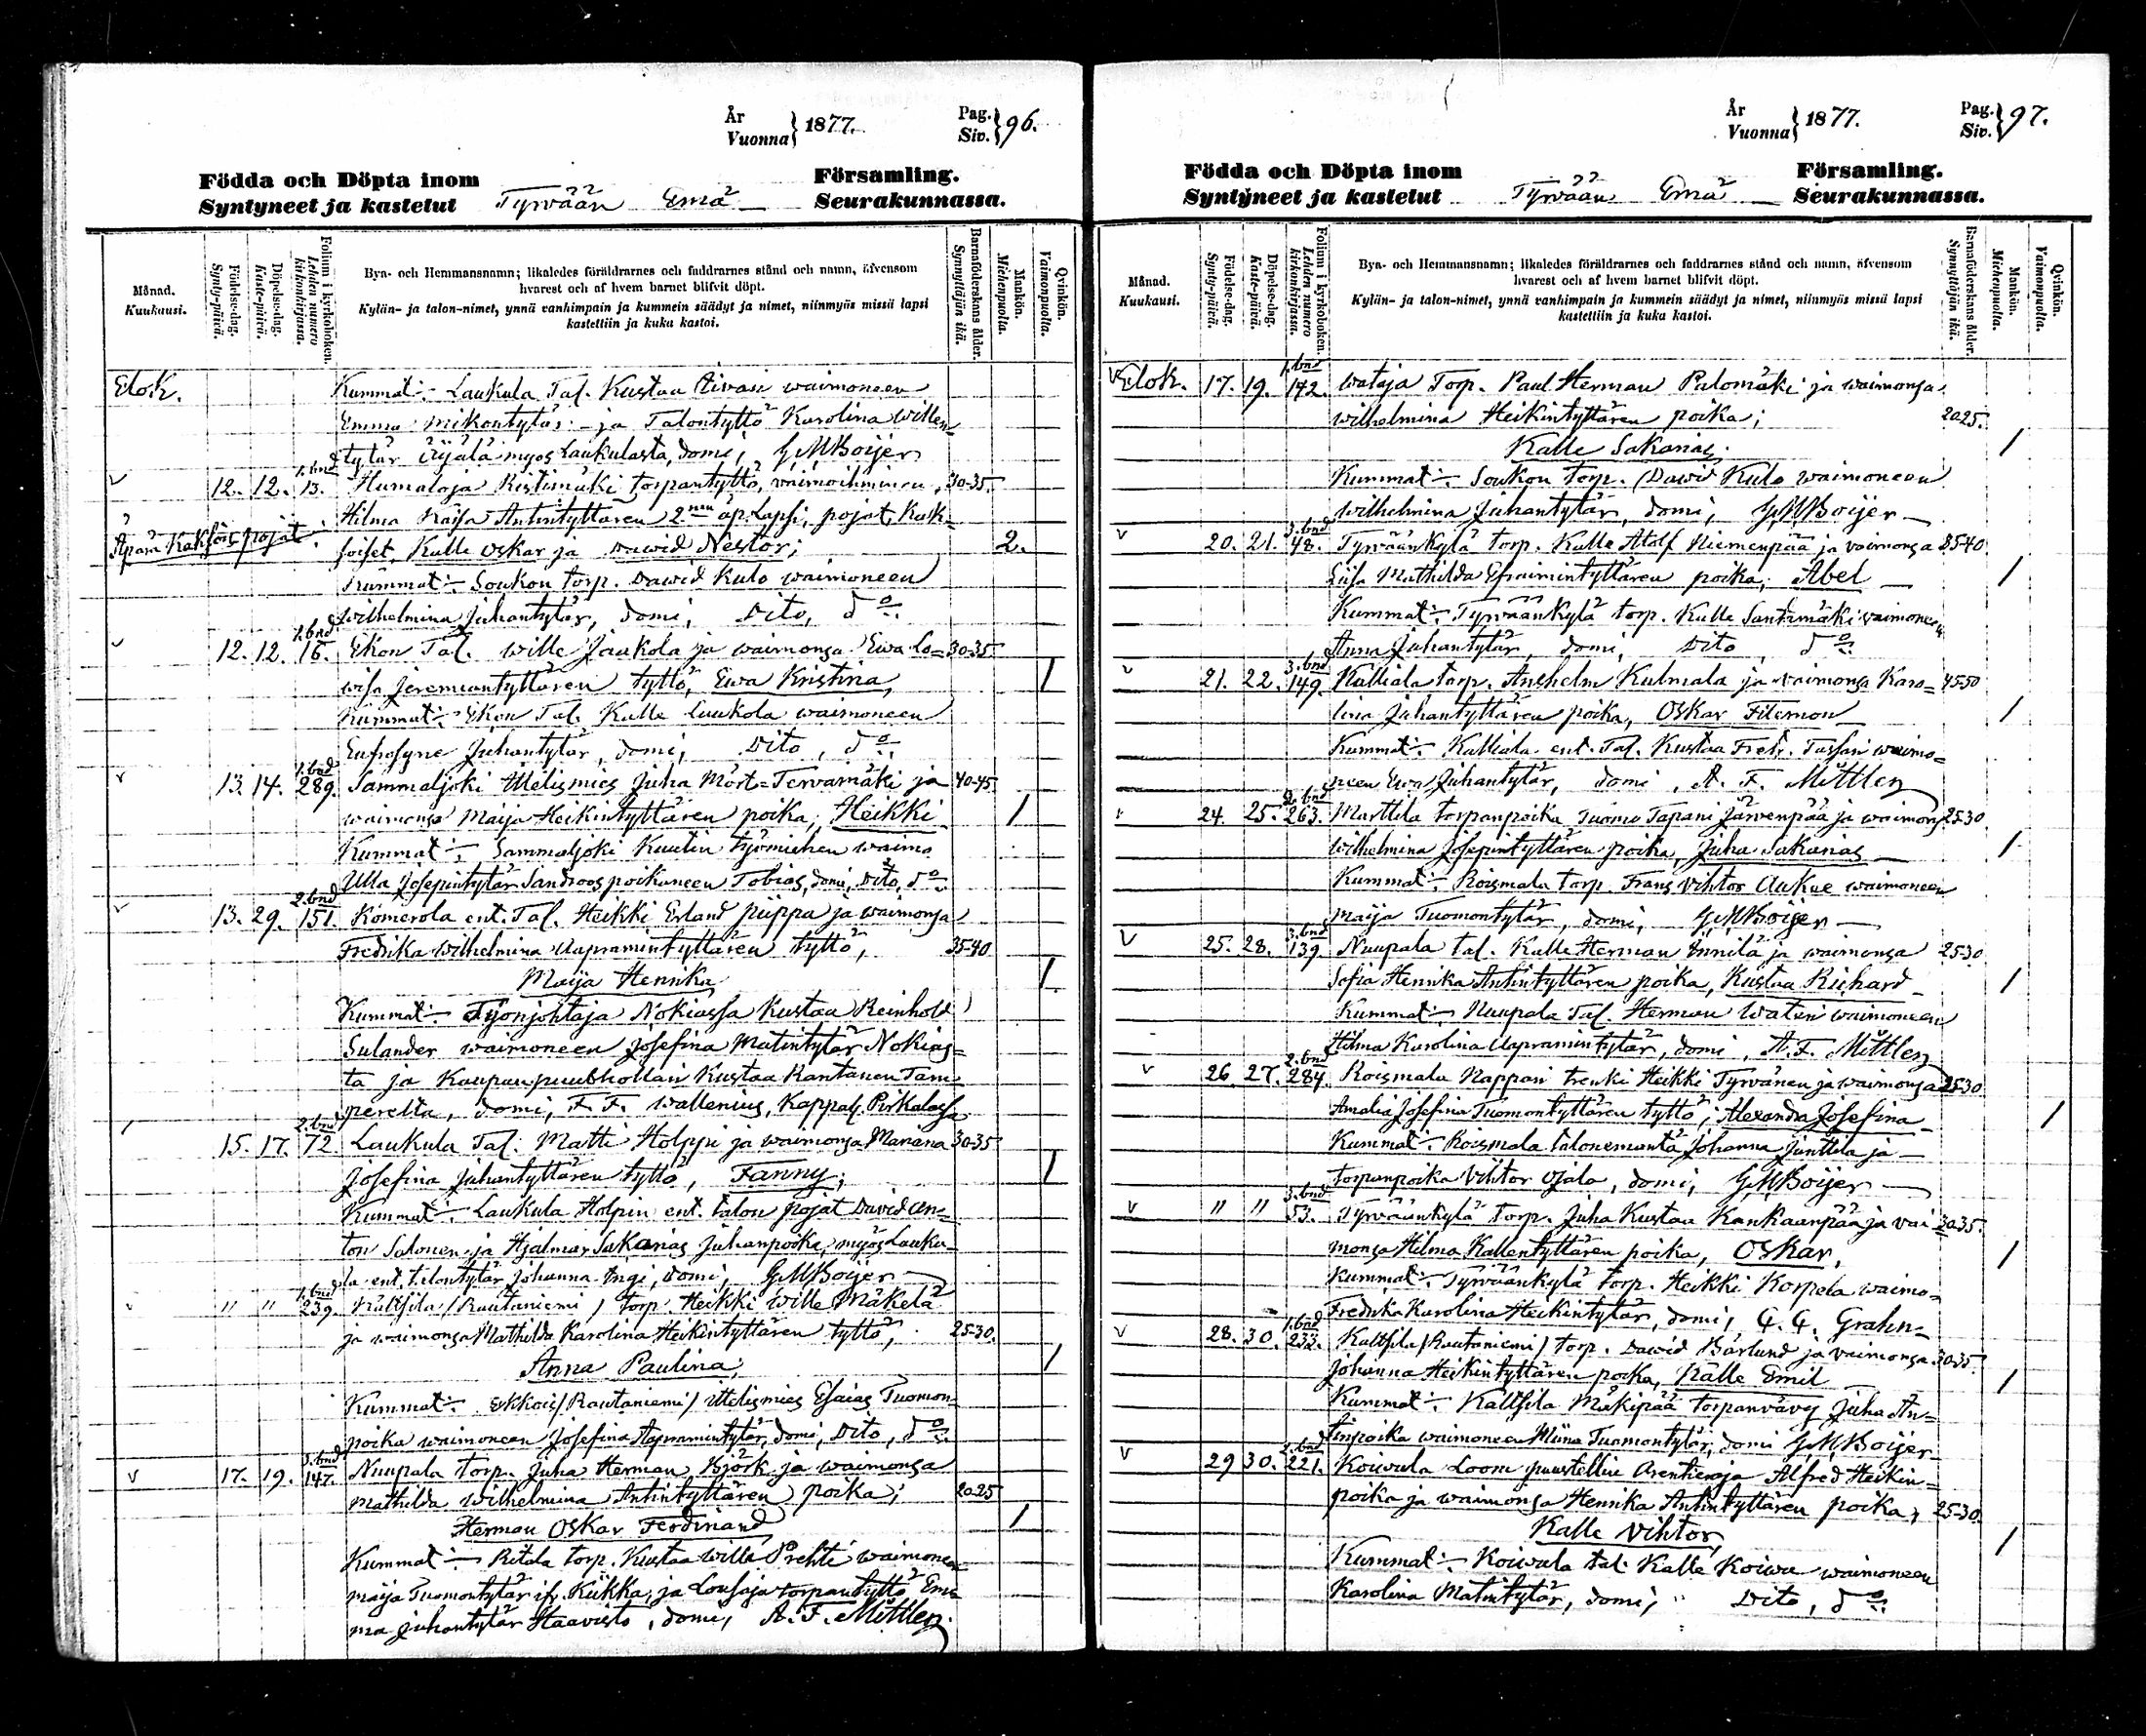 År
Vuonna } 1877.
Pag.
Siv. } 96.
Födda och Döpta inom Församling.
Syntyneet ja kastetut Tyrvään Emä Seurakunnassa.
Månad.
Kuukausi.
Födelse-dag.
Synty-päivä.
Döpelse-dag.
Kaste-päivä.
Folium i kyrkoboken.
Lehden numero
kirkonkirjassa.
Bya- och Hemmansnamn; likaledes föräldrarnes och faddrarnes stånd och namn, äfvensom
hvarest och af hvem barnet blifvit döpt.
Kylän- ja talon-nimet, ynnä vanhimpain ja kummein säädyt ja nimet, niinmyös missä lapsi
kastettiin ja kuka kastoi.
Barnaföderskans ålder.
Synnyttäjän ikä.
Mankön.
Miehenpuolta.
Qvinkön.
Vaimonpuolta.
Elok. Kummat:- Laukula Tal. Kustaa waimoneen
Emma Mikontytär: ja Talontyttö Karolina Willen-
tytär Äijälä myös Laukulasta, domi; G.M.Boijer
v 12. 12. 1.bnd 13. Humaloja Ristimäki torpantyttö, vaimoihminen 30-35.
Hilma Kaisa Antintyttären 2nen äp. Lapsi, pojat, kak-
Äpärä Kaksois pojat. soiset, Kalle Oskar ja Dawid Nestor; 2.
Kummat:- Soukon torp. Dawid Kulo waimoneen
Wilhelmina Juhantytär, domi, Dito, do:
v 12. 12. 1.bnd 16. Ekon Tal. Wille Jaukola ja waimonsa Ewa Lo= 30-35
wisa Jeremiantyttären tyttö, Ewa Kristina, 1
Kummat:- Ekon Tal. Kalle Luukola waimoneen
Eufrosyne Juhantytär, domi; Dito, do:
v 13. 14. 1.bnd 289. Sammaljoki Itselismies Juha Mört-Tervamäki ja 40-45
waimonsa Maija Heikintyttären poika; Heikki 1
Kummat:- Sammaljoki Kuutin työmiehen waimo
Ulla Josepintytär Sandroos poikaneen Tobias, domi, Dito, do
v 13. 29. 2.bnd 151. Komerola ent. Tal. Heikki Erland Piippa ja waimonsa
Fredrika Wilhelmina Aapramintyttären tyttö, 35-40
Maija Henrika 1
Kummat:- Työnjohtaja Nokiassa Kustaa Reinhold
Sulander waimoneen Josefina Matintytär Nokias-
ta ja Kaupanpuukhollari Kustaa Rantanen Tam
perelta, domi, F. F. Wallenius, Kappal. Pirkalassa
15. 17. 2.bnd 72. Laukula Tal. Matti Holppi ja waimonsa Mariana 30-35
Josefina Juhantyttären tyttö, Fanny; 1
Kummat:- Laukula Holpin ent. talon pojat David An-
ton Salonen ja Hjalmar Sakarias Juhanpoika, myös Lauku-
la ent. talontytär Johanna Ingi, domi; G.M.Boijer
v " " 1.bnd 239. Kaltsila /Rautaniemi/ torp. Heikki Wille Mäkelä
ja waimonsa Mathilda Karolina Heikintyttären tyttö, 25-30.
Anna Paulina, 1
Kummat:- Ekkois/Rautaniemi/ Itselismies Esaias Tuomon-
poika waimoneen Josefina Aapramintytär, domi, Dito, do:
v 17. 19. 3.bnd 147. Nuupala torp. Juha Herman Björk ja waimonsa
Mathilda Wilhelmina Antintyttären poika; 20-25
Herman Oskar Ferdinand 1
Kummat:- Ritala torp. Kustaa Wille Prehti waimoneen
Maija Tuomontytär ifr. Kiikka, ja Lousaja torpantyttö Em=
ma Juhantytär Haavisto, domi, A. F. Mittler.
År
Vuonna } 1877.
Pag.
Siv. } 97.
Födda och Döpta inom Församling.
Syntyneet ja kastetut Tyrvään Emä Seurakunnassa.
Månad.
Kuukausi.
Födelse-dag.
Synty-päivä.
Döpelse-dag.
Kaste-päivä.
Folium i kyrkoboken.
Lehden numero
kirkonkirjassa.
Bya- och Hemmansnamn; likaledes föräldrarnes och faddrarnes stånd och namn, äfvensom
hvarest och af hvem barnet blifvit döpt.
Kylän- ja talon-nimet, ynnä vanhimpain ja kummein säädyt ja nimet, niinmyös missä lapsi
kastettiin ja kuka kastoi.
Barnaföderskans ålder.
Synnyttäjän ikä.
Mankön.
Miehenpuolta.
Qvinkön.
Vaimonpuolta.
v Elok. 17. 19. 1.bnd 142. Wataja Torp. Paul Herman Palomäki ja waimonsa
Wilhelmina Heikintyttären poika; 20-25.
Kalle Sakarias. 1
Kummat:- Soukon torp. Dawid Kulo waimoneen
Wilhelmina Juhantytär, domi, G.M.Boijer
v 20. 21. 3.bnd 48. Tyrväänkylä torp. Kalle Adolf Niemenpää ja vaimonsa 35-40
Liisa Mathilda Efraimintyttären poika, Abel 1
Kummat:- Tyrväänkylä torp. Kalle Santamäki waimoneen
Anna Juhantytär, domi, Dito, do:
v 21. 22. 3.bnd 149. Kalliala torp. Anshelm Kulmala ja waimonsa Karo= 45-50
lina Juhantyttären poika, Oskar Filemon 1
Kummat:- Kalliala ent. Tal. Kustaa Fredr. Tassari waimo=
neen Ewa Juhantytär, domi, A. F. Mittler
v 24. 25. 2.bnd 263. Marttila torpanpoika Tuomo Tapani Järvenpää ja waimons. 25-30
Wilhelmina Josepintyttären poika, Juha Sakarias 1
Kummat:- Roismala torp. Frans Vihtor Aukee waimoneen
Maija Tuomontytär, domi, G.M.Boijer
v 25. 28. 3.bnd 139. Nuupala tal. Kalle Herman Ennilä ja waimonsa 25-30
Sofia Henrika Antintyttären poika, Kustaa Richard 1
Kummat:- Nuupala Tal. Herman Watin waimoneen
Hilma Karolina Aapramintytär, domi, A. F. Mittler
v 26. 27. 2.bnd 284. Roismala Nappari trenki Heikki Tyrvänen ja waimonsa 25-30
Amalia Josefina Tuomontyttären tyttö; Alexandra Josefina 1
Kummat:- Roismala talonemäntä Johanna Junttila ja
torpanpoika Vihtor Ojala, domi, G.M.Boijer
v " " 3.bnd 53. Tyrväänkylä torp. Juha Kustaa Kankaanpää ja vai 30-35.
monsa Hilma Kallentyttären poika, Oskar, 1
Kummat:- Tyrväänkylä torp. Heikki Korpela waimo=
Fredrika Karolina Heikintytär, domi, G. G. Grahn-
v 28. 30. 1.bnd 233. Kaltsila/Rautaniemi/ torp. Dawid Bärlund ja vaimonsa 30-35
Johanna Heikintyttären poika, Kalle Emil 1
Kummat:- Kaltsila Mäkipää torpanvävy Juha An=
tinpoika waimoneen Miina Tuomontytär, domi G.M.Boijer
v 29 30. 2.bnd 221. Koiwula Loom puustellin Arentieraja Alfred Heikin=
poika ja waimonsa Henrika Antintyttären poika, 25-30.
Kalle Vihtor, 1
Kummat:- Koiwula tal. Kalle Koiwu waimoneen
Karolina Matintytär, domi, " Dito, do: